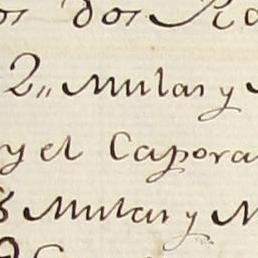 dos
2,, Mulas y
y el Capora
Mulas y M